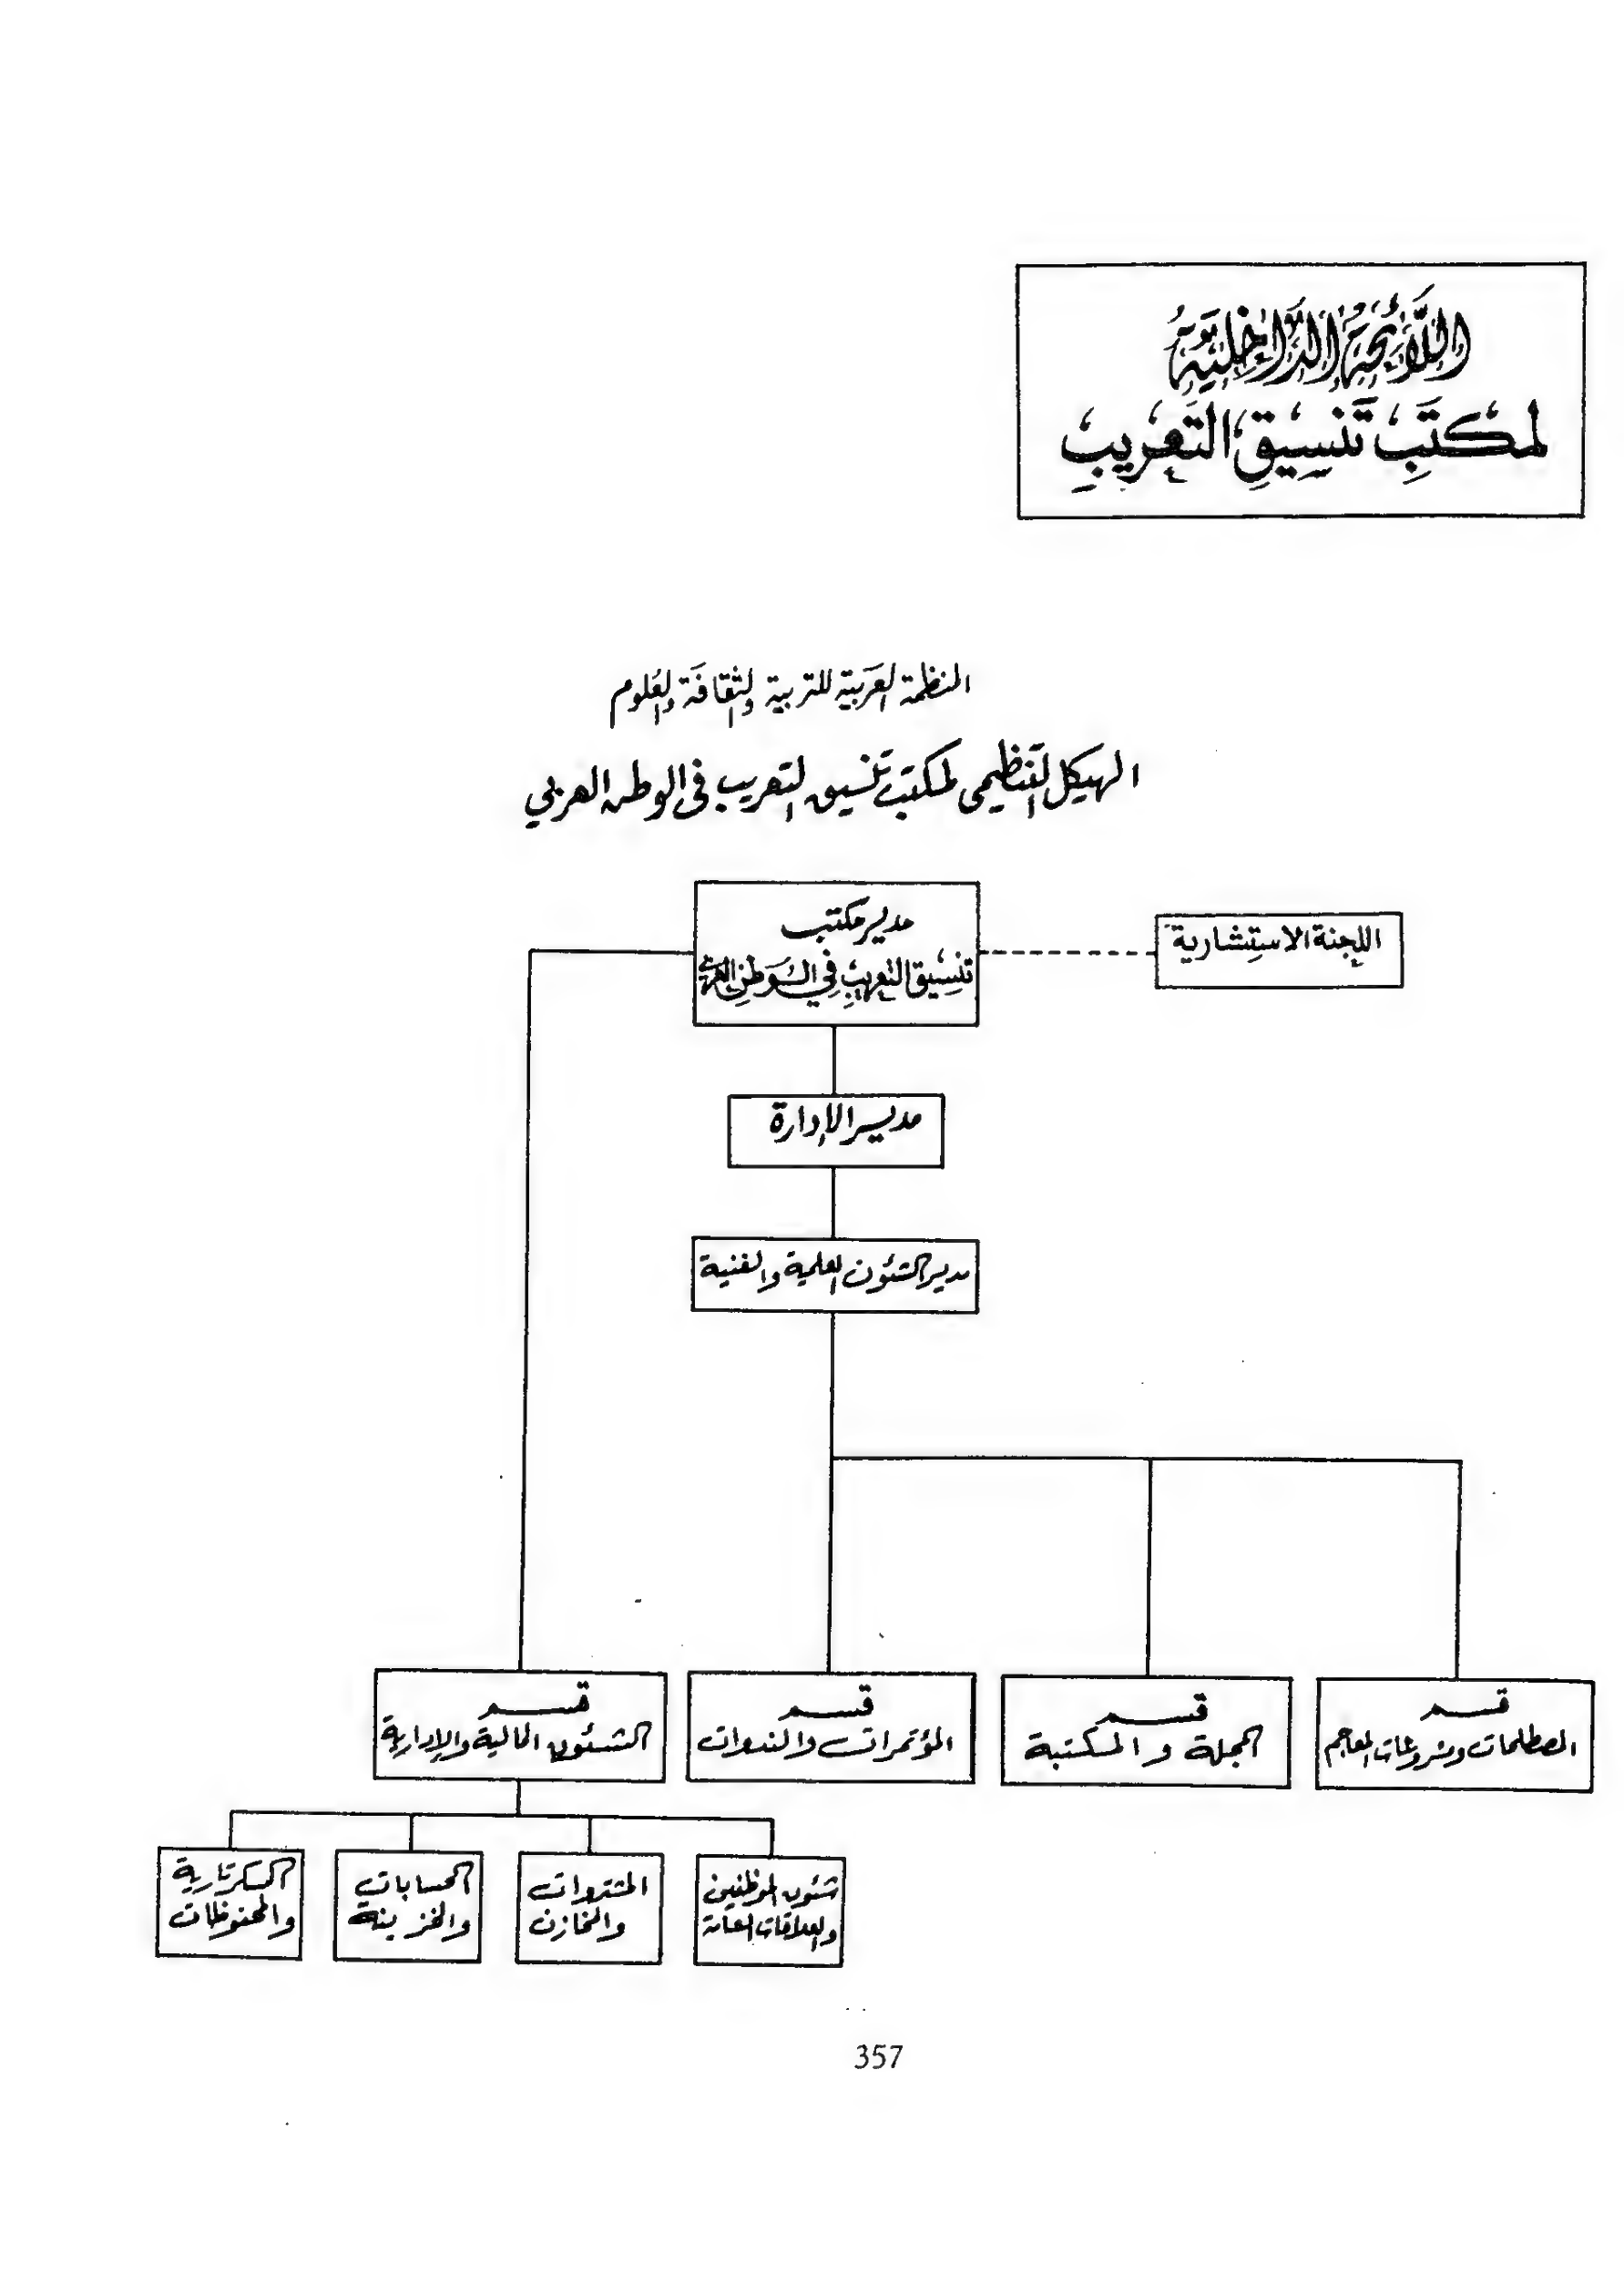 اللَّائِحَةُ الدَّاخِلِيَّةُ
لمكتَبِ تَنسِيقِ التَعريبِ
المنظمة العَربيّة للتربية والثقافَة والعُلوم
الهيكل التنظيمى لمكتب تنسيق التعريب فى الوطن العربي
مدير مكتب
تنسِيق التعريبِ فِي الوَطنِ العربي
اللجنة الاستِشارية
مديـر الإدارة
مدير الشئون العلمية والفنية
قسم
المصطلحات ومشروعات المعاجم
قسم
المجلة والمكتبة
قسم
المؤتمرات والندوات
قسم
الشئون المالية والإدارية
شئون الموظفين
والعلاقات العامة
المشتروات
والمخازن
الحسابات
والخزينة
السكرتارية
والمحفوظات
357